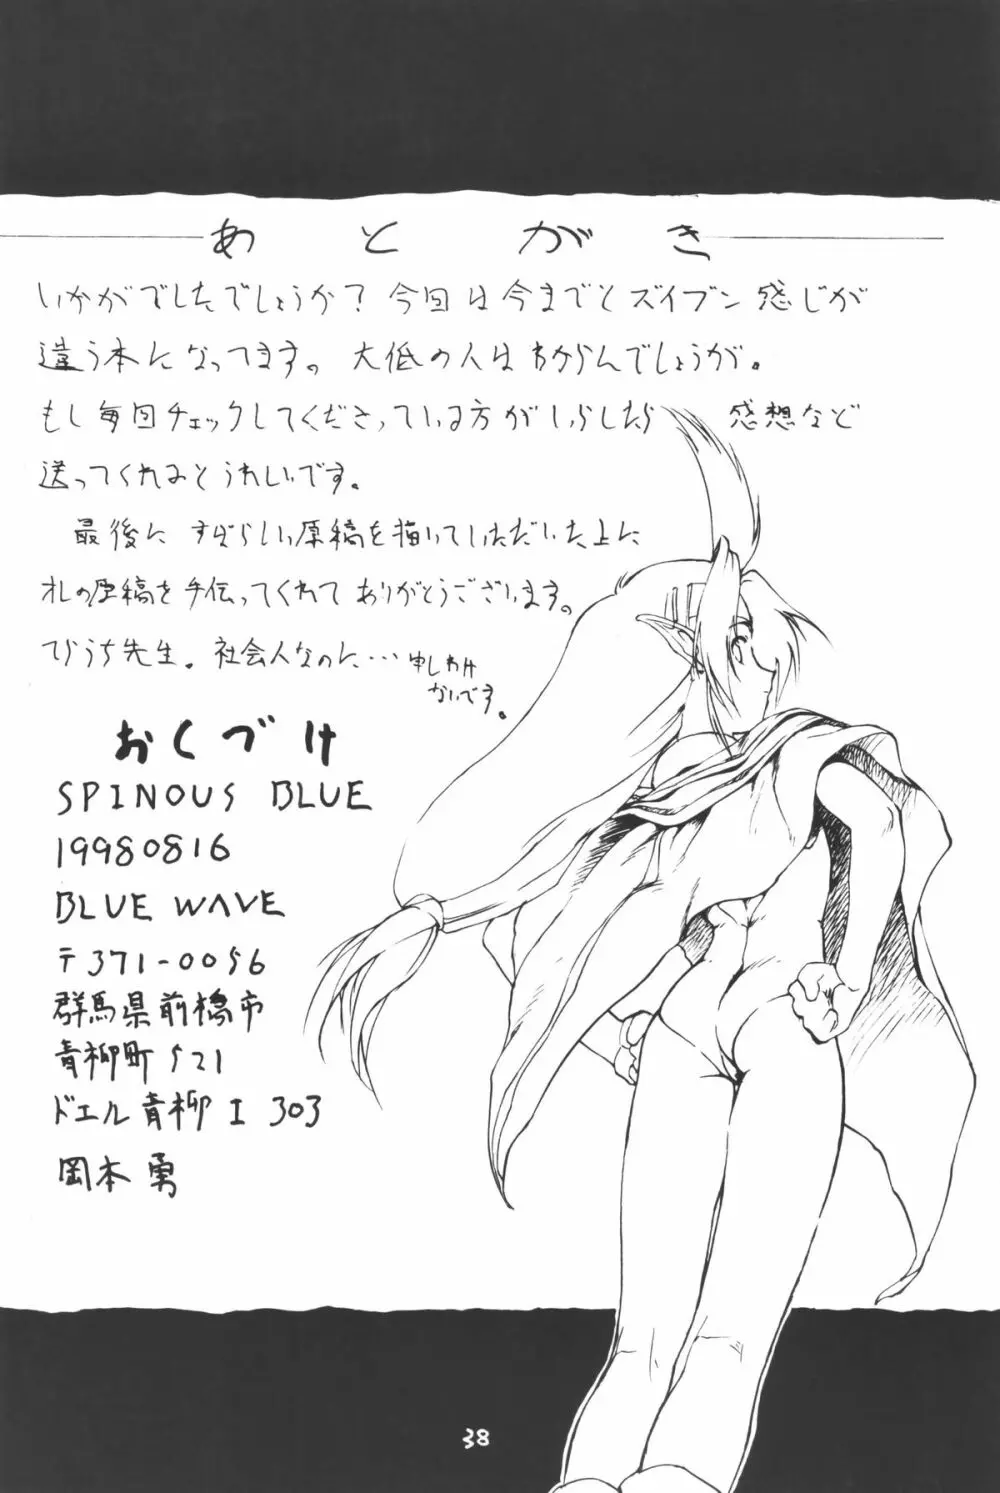 あとがき
いかがでしたでしょうか?今回は今までとズイブン感じが
違う本になってます。大低の人はわからんでしょうが。
もし毎回チェックしてくださっている方がいらしたら 感想など
送ってくれるとうれしいです。
最後に すばらしい原稿を描いていただいた上に
オレの原稿を手伝ってくれてありがとうございます。
てらうち先生。社会人なのに…申しわけ
ないです。
おくづけ
SPINOUS BLUE
19980816
BLUE WAVE
〒371-0056
群馬県前橋市
青柳町521
ドエル青柳I 303
岡本勇
38